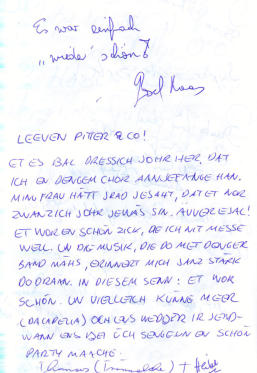 Es war einfach
„wieder" schön!
LEEVEN PITTER & CO!
ET ES BAL DRESSICH JOHR HER, DAT
ICH EN DENGEM CHOR AANJEFANGE HAN.
MING FRAU HÄTT JRAD JESAHT, DAT ET NOR
ZWANZICH JOHR JEWÄS SIN. ÄUVER EJAL!
ET WOR EN SCHÖN ZICK, DIE ICH NIT MESSE
WELL. UN DIE MUSIK, DIE DO MET DENGER
BAND MÄHS, ERINNERT MICH JANZ STARK
DO DRAHN. IN DIESEM SENN: ET WOR
SCHÖN. UN VIELLEICH KÜNNE MEER
OCH ENS WEDDER IRJEND-
WANN ENS BEI ÜCH SENGE UN EN SCHÖN
PARTY MAACHE.
Thomas + Heike